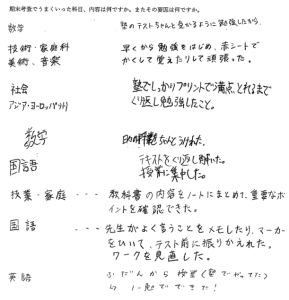 期末考査でうまくいった科目、内容は何ですか。またその要因は何ですか。
数学 塾のテストちゃんと受かるように勉強したから。
技術・家庭科 早くから勉強をはじめ、赤シートで
美術、音楽 かくして覚えたりして頑張った。
社会 塾でしっかりプリントで満点とれるまで
アジア・ヨーロッパ くり返し勉強したこと。
数学 ちゃんとうけれた。
国語 テキストをくり返し解いた。
授業に集中した。
技業・家庭 --- 教科書の内容をノートにまとめて、重要なポ
イントを確認できた。
国語 --- 先生がよく言うことをメモしたり、マーカー
をひいて、テスト前に振りかえれた。
ワークを見直した。
英語 ふだんから